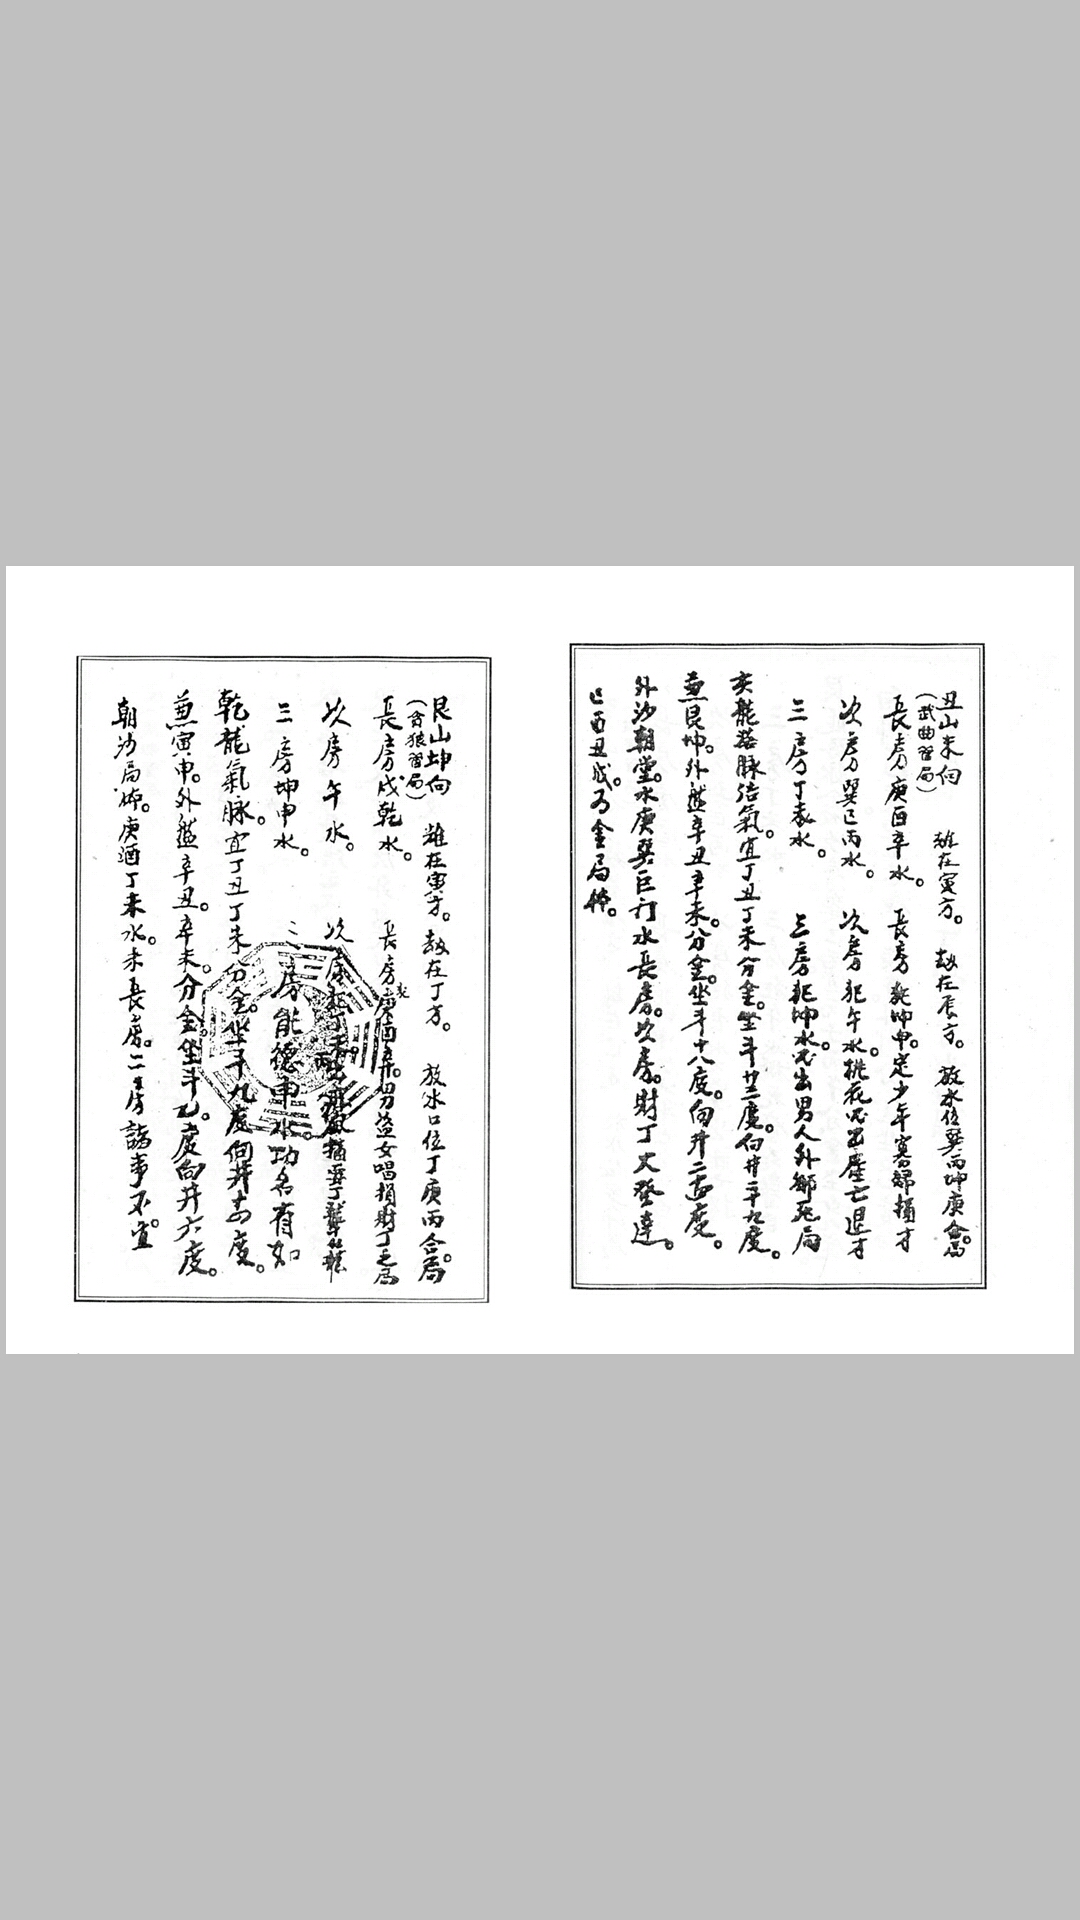 丑山未向　　雄在寅方。　劫在辰方。　放水位巽丙坤庚合局。
（武曲習局）
長房庚酉辛水。　長房犯坤申。定少年寡婦損才
次房巽巳丙水。　次房犯午水。桃花 亡退才
三房丁未水。　三房犯坤水。 出男人外鄉死局
亥龍落脉結氣。宜丁丑丁未分金。坐斗廿二度。向井二十九度。
兼艮坤。外盤辛丑辛未。分金。坐斗十八度。向井二 度。
外沙朝堂。水庚巽巨門水長房。次房。財丁大發達。
巳酉丑戌。為金局 。
艮山坤向　　雄在寅方。　劫在丁方。　放水口位丁庚丙合局。
（貪狼習局）
長房戌乾水。　長房犯庚酉辛。男盜女唱損財丁之局
次房午水。　次房 丁未。
三房坤申水。　三房能德申水。功名有如
乾龍氣脉。宜丁丑丁未分金。坐斗九度向井 度。
兼寅申。外盤辛丑。辛未。分金。坐斗 度向井六度。
朝沙局 。庚酒丁未水。未長房。二 房諸事不宜。